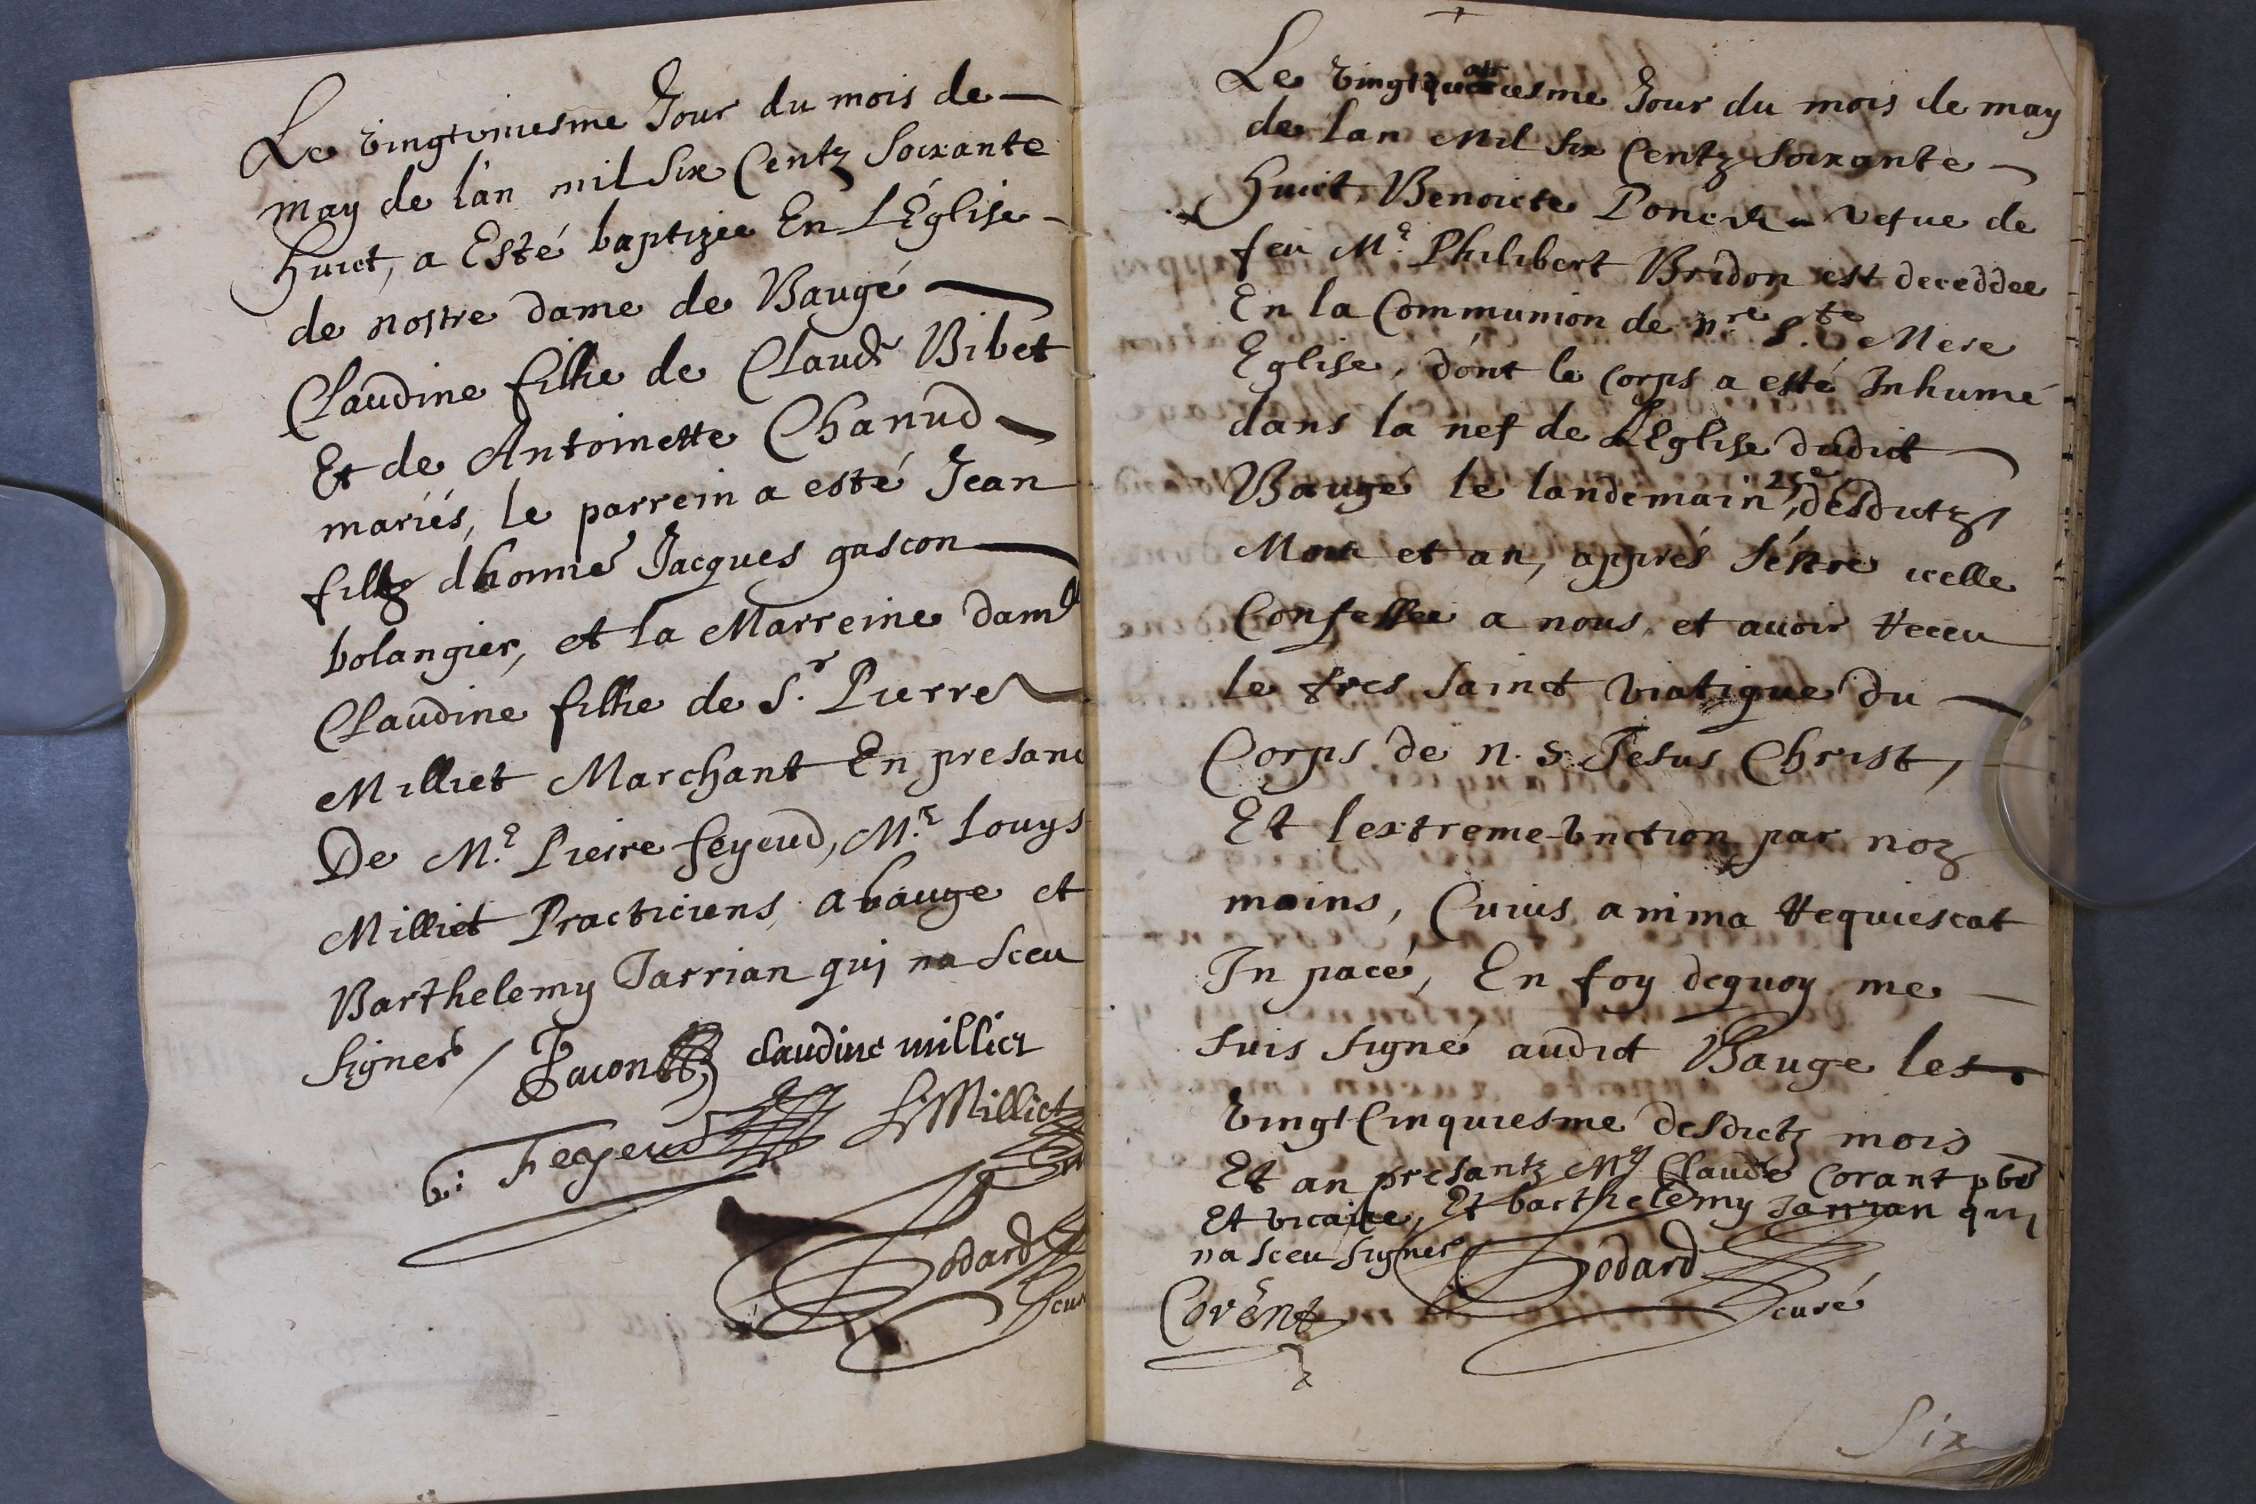 Le vingtuniesme Jour du mois de
may de lan mil Six Centz Soixante
huict, a Esté baptizée En L'Église
de nostre dame de Baugé
Claudine fillie de Claude Bibet
Et de Antoinette Chanud
mariés, le parrein a esté Jean
fillz dhonne Jacques gascon
bolangier, et la Marreine dam
Claudine fillie de S.r Pierre
Milliet Marchant En presanc
De M.e Pierre feyeud, M.e Louys
Milliet Practiciens, a bauge et
Barthelemy Jarrian qui na Sceu
Signer / claudine milliet
Feyeud L Milliet
Godard
cur
Le vingtquatriesme Jour du mois de may
de lan Mil Six Centz Soixante
huict Benoicte Poncet vefue de
feu M.e Philibert Bridon est deceddee
En la Communion de n.re S.te Mere
Eglise, dont le corps a esté Inhumé
dans la nef de L'Eglise dudict
Baugé le landemain 25e desdictz
Mois et an, apprés s'éstre icelle
Confessee a nous, et auoir receu
le tres Sainct viatique du
Corps de N. S. Jesus Christ,
Et lextreme-unction par noz
mains, Cuius anima requiescat
In pacé, En foy dequoy me
suis signé audict Bauge les
vingtCinquiesme desdictz mois
Et an presantz Mre Claude Corant pbre
Et vicaire, Et barthelemy Jarrian qui
na sceu signer Godard
curé
Corent
Six